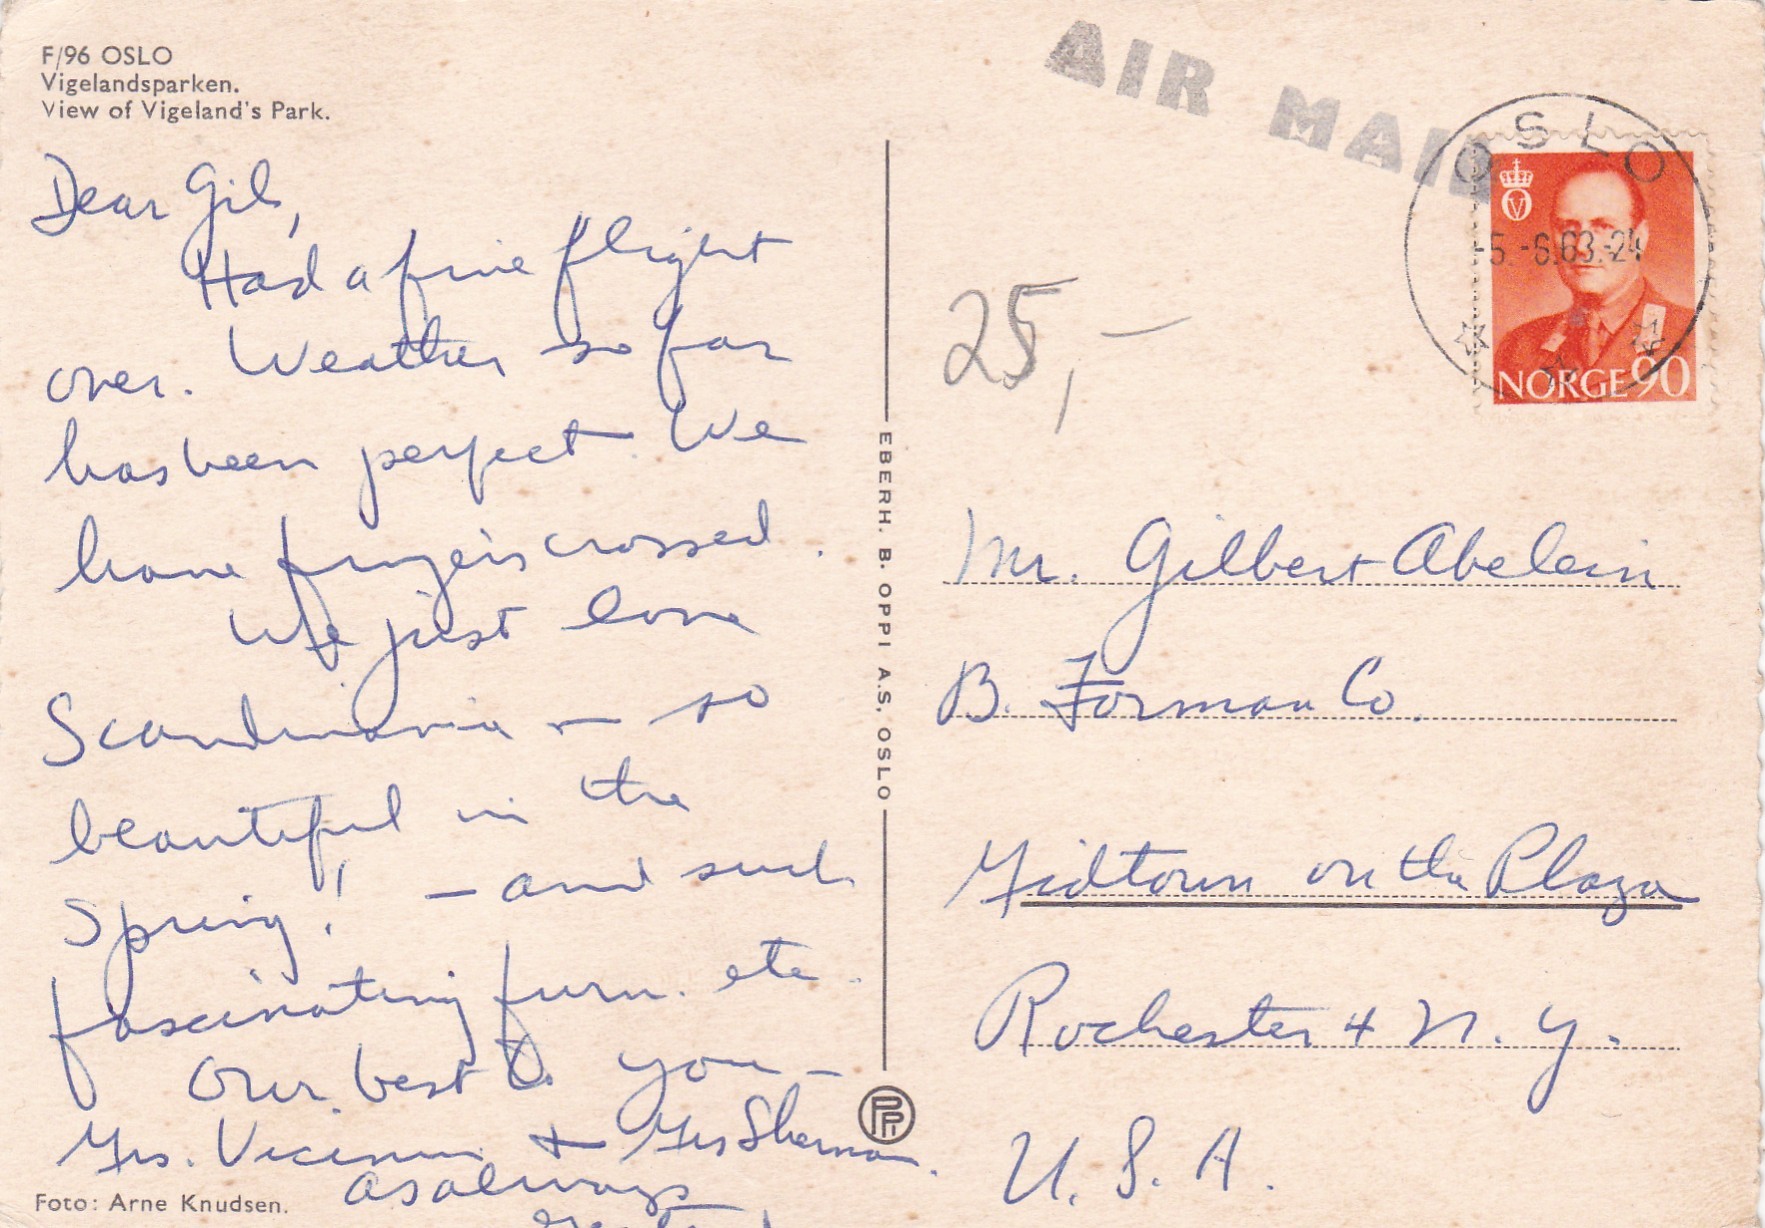 F/96 OSLO
Vigelandsparken.
View of Vigeland's Park.
Dear Gil,
Had a fine flight
over. Weather so far
has been perfect. We
have fingers crossed.
We just love
Scandinavia — so
beautiful in the
Spring! — and such
fascinating furn. etc.
Our best to you —
Mrs. &  Mrs Sherman.
as always
Foto: Arne Knudsen.
EBERH. B. OPPI A.S. OSLO
PP
AIR MAIL
OSLO
-5.-6.63.-24
V
NORGE 90
25,-
Mr. Gilbert Abelein
B. Forman Co.
Midtown on the Plaza
Rochester 4 N.Y.
U.S.A.